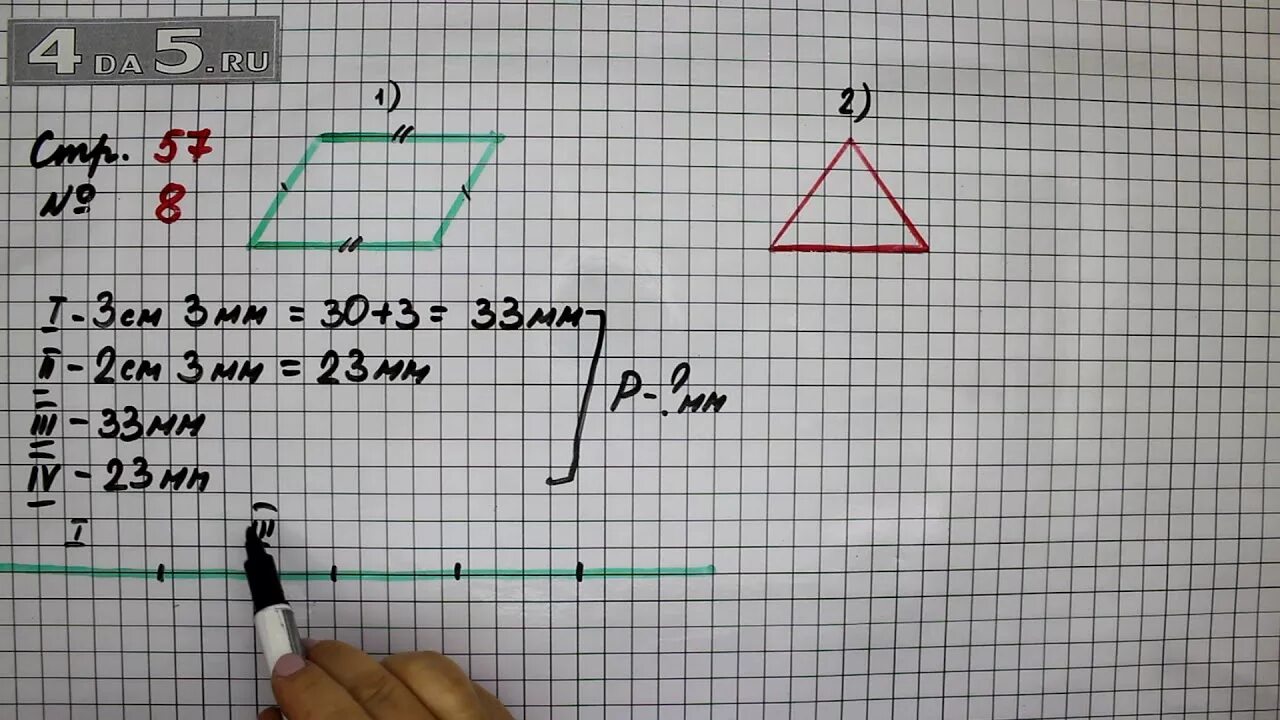 4 DA 5.RU
1)
2)
Стр. 57
№ 8
I - 3см 3мм = 30+3 = 33мм
II - 2см 3мм = 23мм
P - ? мм
III - 33мм
IV - 23мм
I III